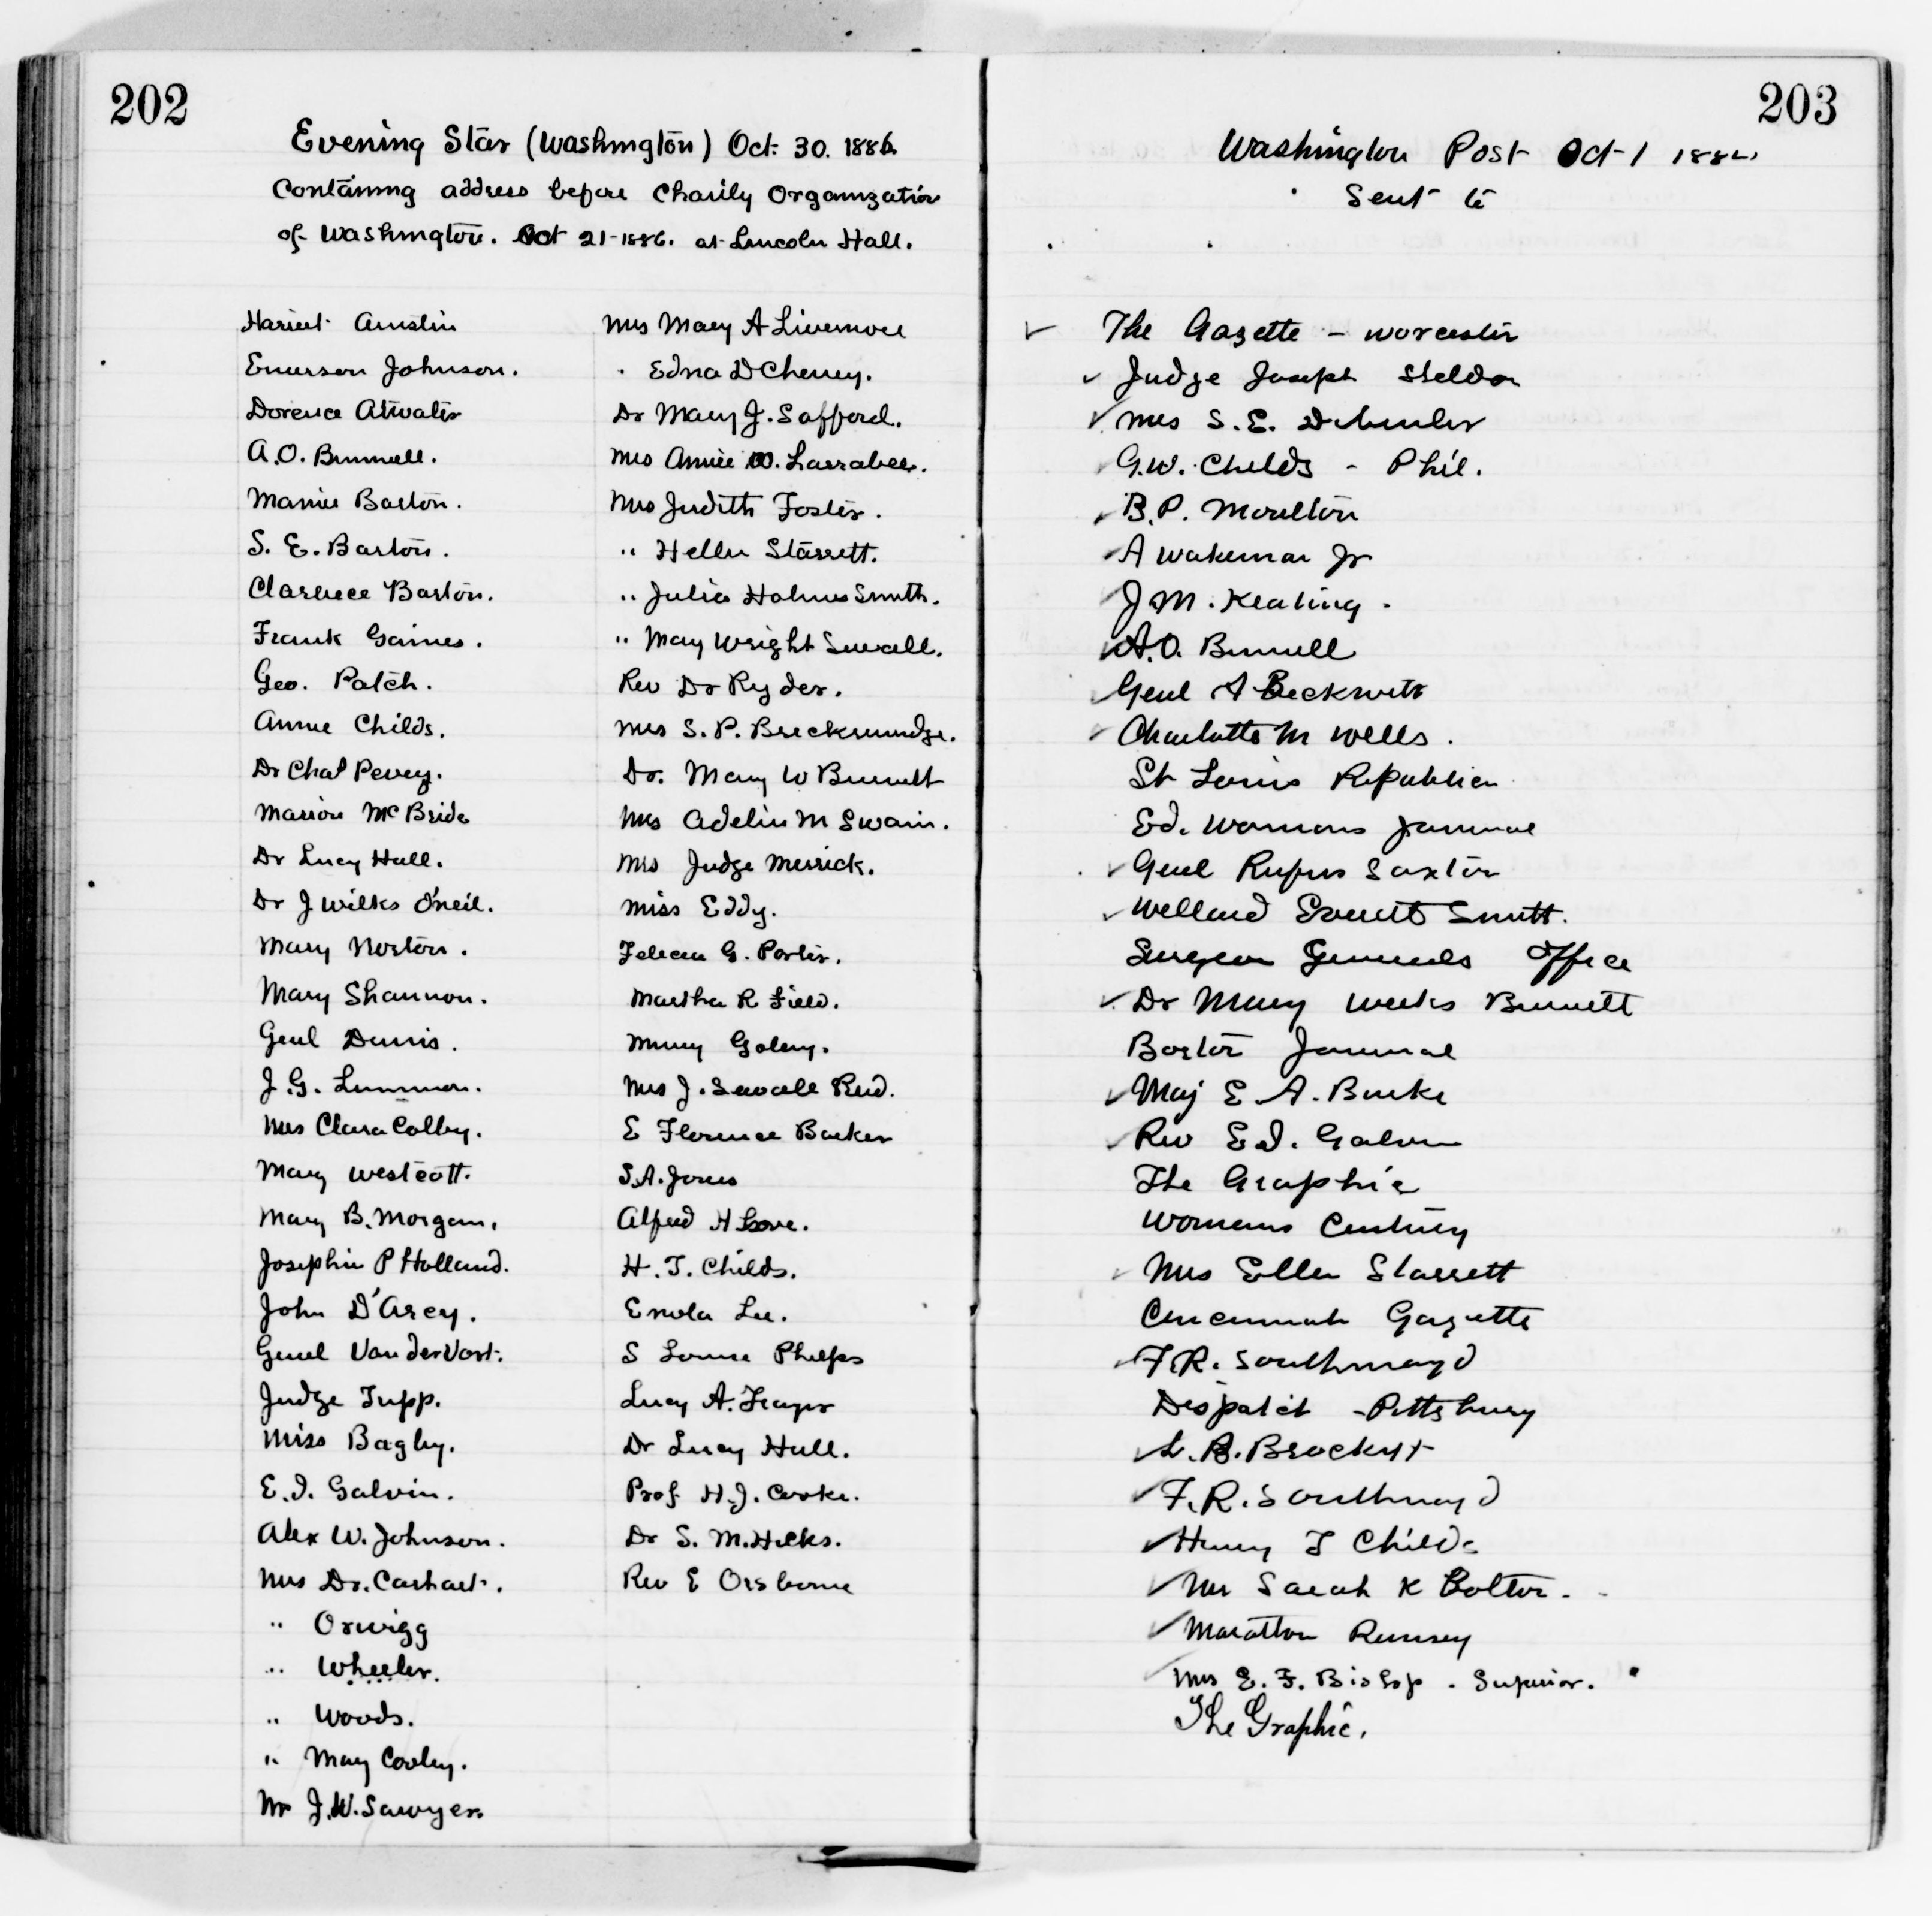 202
Evening Star (Washington) Oct. 30. 1886.
Containing address before Charity Organization
of Washington. Oct 21-1886. at Lincoln Hall.
Harriet Austin
Emerson Johnson.
Dorence Atwater
A.O. Bunnell.
Mamie Barton.
S. E. Barton.
Clarence Barton.
Frank Gaines.
Geo. Patch.
Annie Childs.
Dr Chas Pevey.
Marion McBride
Dr Lucy Hall.
Dr J Wilks O'neil.
Mary Norton.
Mary Shannon.
Genl Dennis.
J. G. Lemmon.
Mrs Clara Colby.
Mary Westcott.
Mary B. Morgan.
Josephine P Holland.
John D'Arcy.
Genel VanderVort.
Judge Tupp.
Miss Bagby.
E. I. Galvin.
Alex W. Johnson.
Mrs Dr. Carhart.
" Orwigg
" Wheeler.
" Woods.
" May Cooley.
Mr J.W. Sawyer.
Mrs Mary A Livermore
" Edna D Cheney.
Dr Mary J. Safford.
Mrs Annie W. Larrabee.
Mrs Judith Foster.
" Hellen Starrett.
" Julia Holmes Smith.
" May Wright Sewall.
Rev Dr Ryder.
Mrs S. P. Breckenridge.
Dr. Mary W Burnett
Mrs Adeline M Swain.
Mrs Judge Merrick.
Miss Eddy.
Felecia G. Porter.
Martha R Field.
Mary Golay.
Mrs J. Sewall Reid.
E Florence Barker
S.A. Jones
Alfred H Love.
H. T. Childs.
Enola Lee.
S Louise Phelps
Lucy A.
Dr Lucy Hall.
Prof H. J. Cooke.
Dr S. M. Hicks.
Rev E Orsborne
203
Washington Post Oct 1 188
Sent to
The Gazette - Worcester
Judge Joseph Sheldon
Mrs S. E.
G.W. Childs - Phil.
B. P. Moulton
A Wakeman Jr
J M. Keating.
A.O. Bunnell
Genl A Beckwith
Charlotte M Wells.
St Louis Republican
Ed. Womans Journal
Genl Rufus Saxton
Welland Everett Smith.
Surgeon Generals Office
Dr Mary Weeks Burnett
Boston Journal
Maj E. A. Burke
Rev E I. Galvin
The Graphic
Womans Century
Mrs Ellen Starrett
Cincinnati Gazette
F. R. Southmayd
Despatch - Pittsburg
L. P. Brockett
F. R. Southmayd
Henry T Childs
Mrs Sarah K Bolton.
Maratton Rumsey
Mrs E. F. Bishop. Superior.
The Graphic.